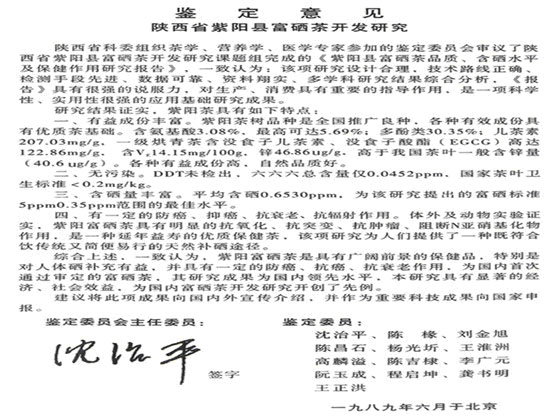 鉴定意见
陕西省紫阳县富硒茶开发研究
陕西省科委组织茶学、营养学、医学专家参加的鉴定委员会审议了陕
西省紫阳县富硒茶开发研究课题组完成的《紫阳县富硒茶品质、含硒水平
及保健作用研究报告》，一致认为，该项研究设计合理，技术路线正确、
检测手段先进、数据可靠、资料翔实，多学科研究结果综合分析，《报
告》具有很强的说服力，对生产、消费具有重要的指导作用，是一项科学
性、实用性很强的应用基础研究成果。
研究结果证实，紫阳茶具有如下特点：
一、有益成份丰富。紫阳茶树品种是全国推广良种，各种有效成份具
有优质茶基础。含氨基酸3.08%，最高可达5.69%；多酚类30.35%；儿茶素
207.03mg/g，一级烘青茶含没食子儿茶素、没食子酸酯（EGCG）高达
122.86mg/g，含Vc14.15mg/100g，锌46.86ug/g，高于我国茶叶一般含锌量
（40.6ug/g）。各种有益成份高，自然品质好。
二、无污染。DDT未检出，六六六总含量仅0.0452ppm，国家茶叶卫
生标准<0.2mg/kg。
三、含硒量丰富。平均含硒0.6530ppm，为该研究提出的富硒标准
5ppm0.35ppm范围的最佳水平。
四、有一定的防癌、抑癌、抗衰老、抗辐射作用。体外及动物实验证
实，紫阳富硒茶具有明显的抗氧化、抗突变、抗肿瘤、阻断N亚硝基化物
作用，是一种延年益寿的优质保健茶，该项研究为人们提供了一种既符合
饮传统又简便易行的天然补硒途径。
综合上述，一致认为，紫阳富硒茶是具有广阔前景的保健品，特别是
对人体硒补充有益，并具有一定的防癌、抗癌、抗衰老作用，为国内首次
通过审定的富硒茶，其研究成果为国内领先水平。本研究具有显著的经
济、社会效益，为国内富硒茶开发研究开创了先例。
建议将此项成果向国内外宣传介绍，并作为重要科技成果向国家申
报。
鉴定委员会主任委员：
沈治平
签字
鉴定委员：
沈治平、陈椽、刘金旭
陈昌石、杨光圻、王淮洲
高麟溢、陈吉棣、李广元
阮玉成、程启坤、龚书明
王正洪
一九八九年六月于北京